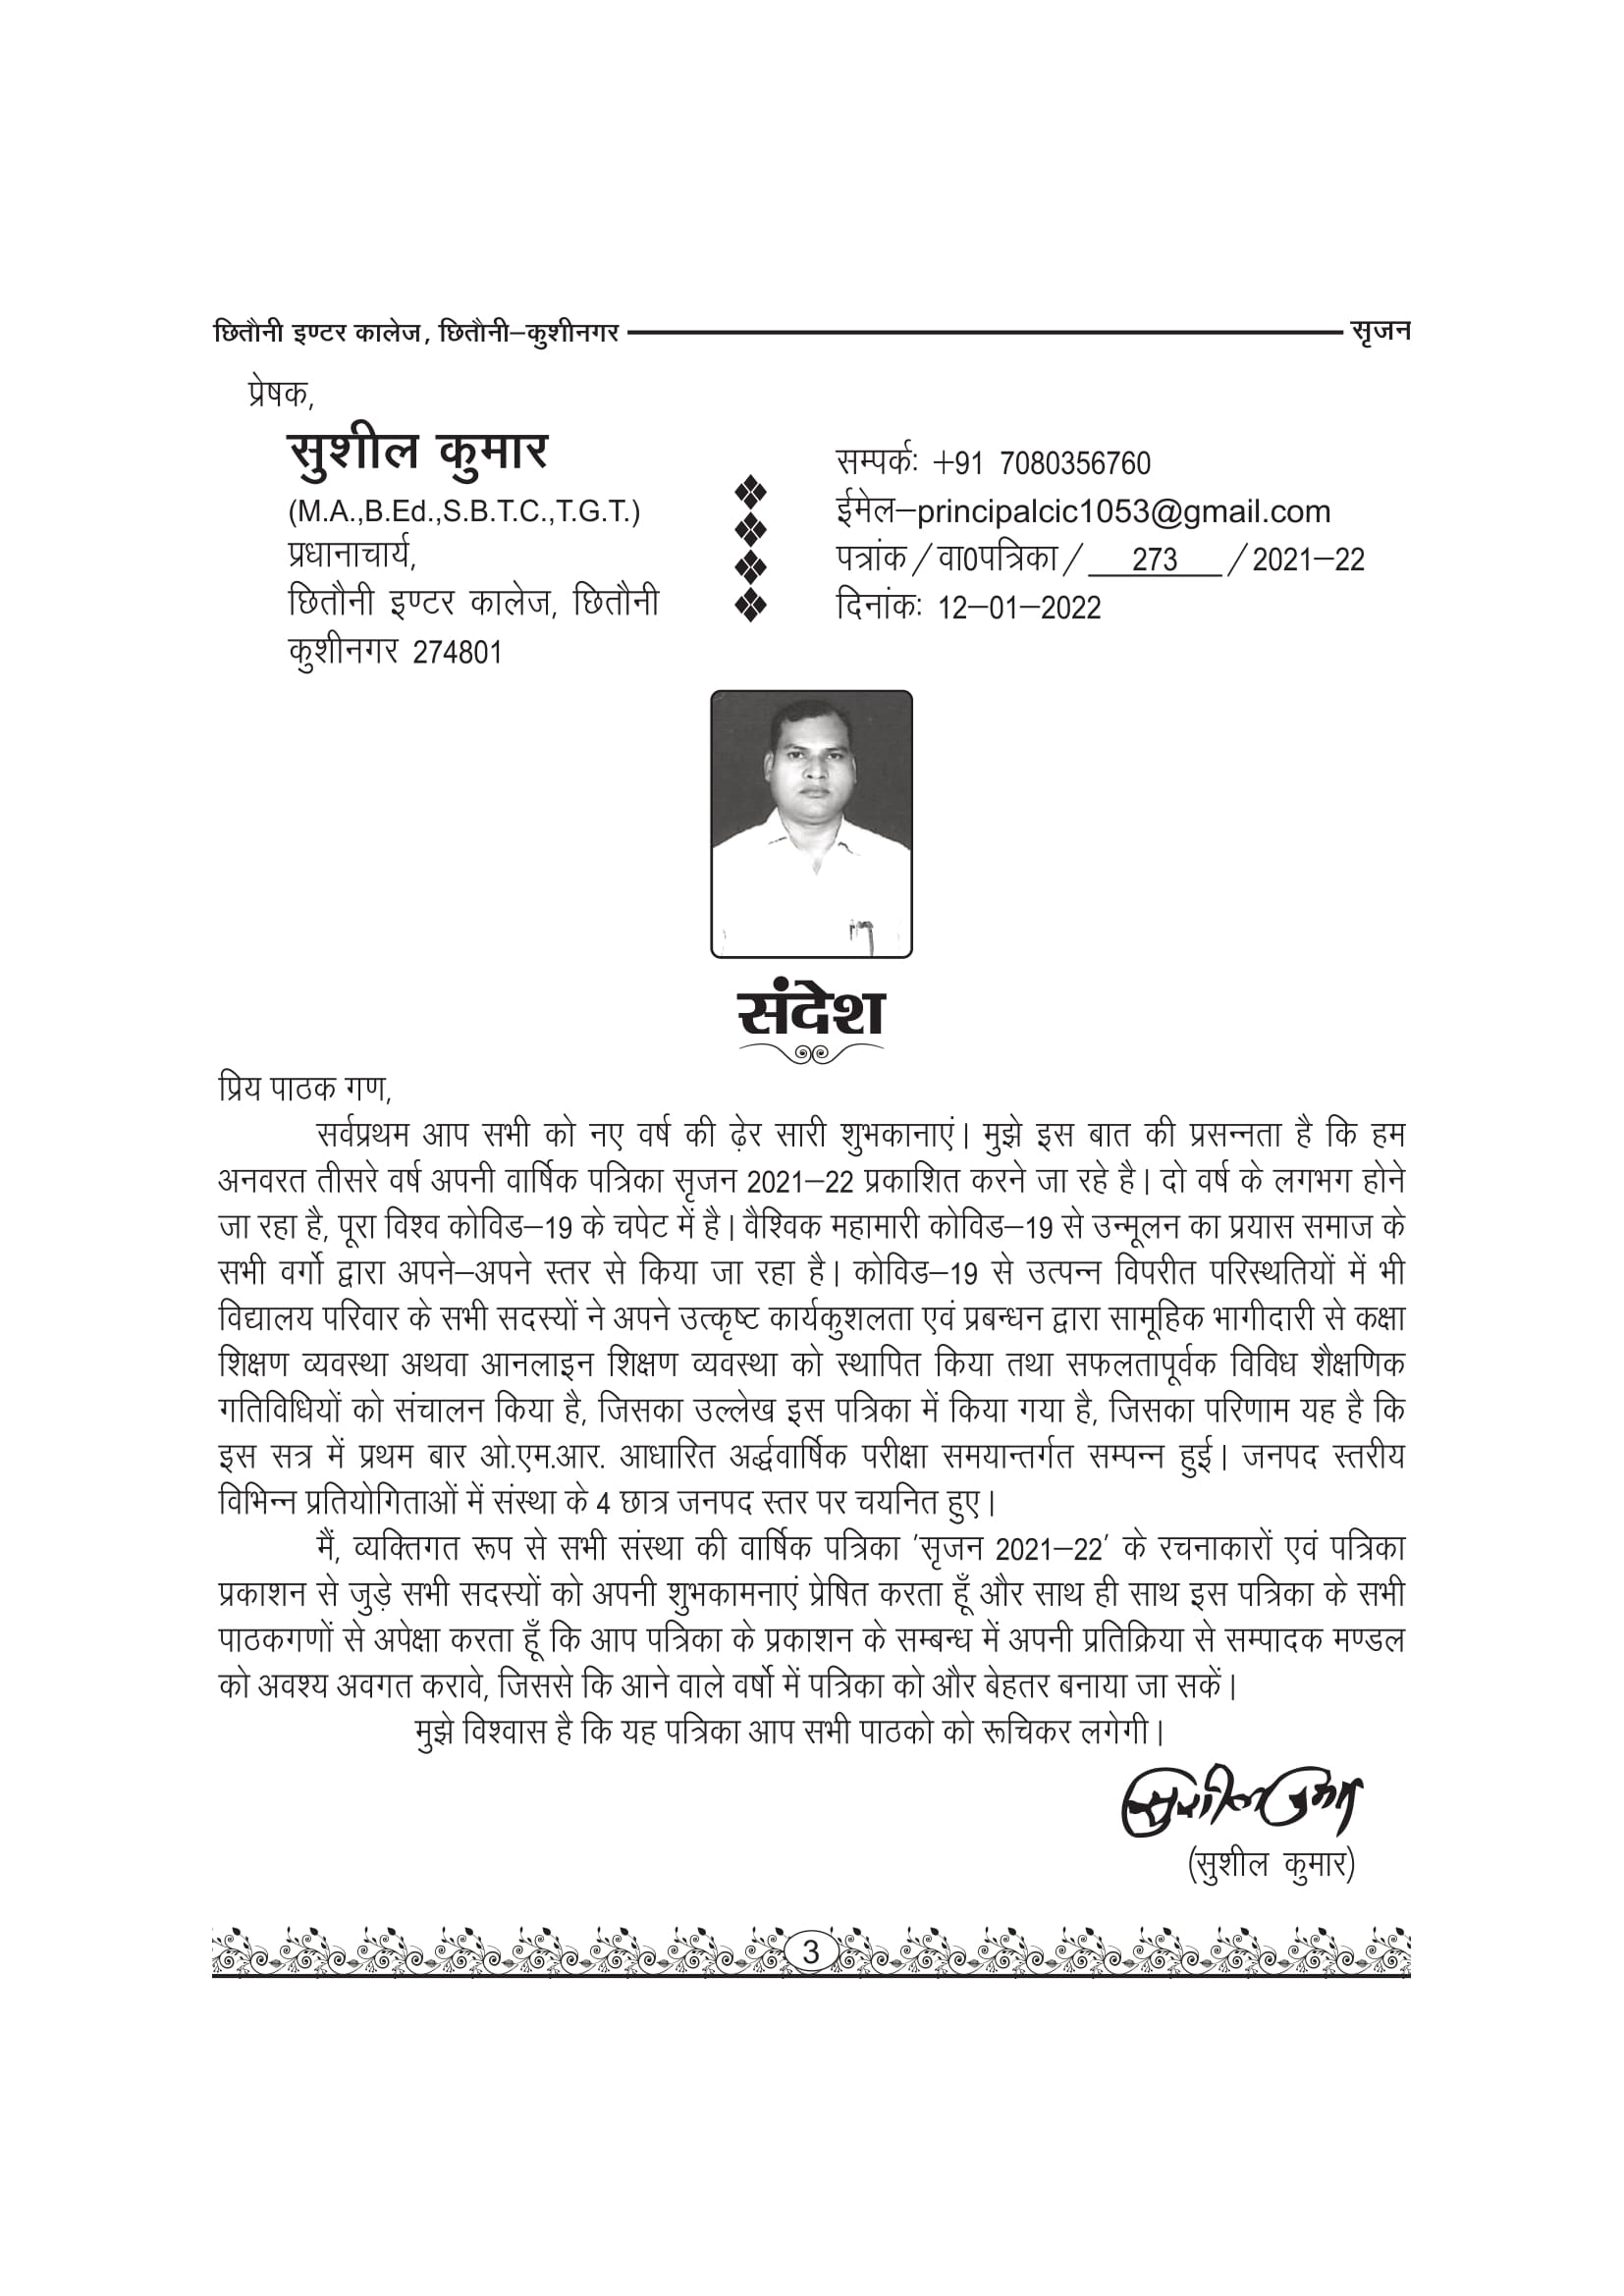 छितौनी इण्टर कालेज, छितौनी–कुशीनगर सृजन
प्रेषक,
सुशील कुमार
(M.A.,B.Ed.,S.B.T.C.,T.G.T.)
प्रधानाचार्य,
छितौनी इण्टर कालेज, छितौनी
कुशीनगर 274801
सम्पर्क: +91 7080356760
ईमेल–principalcic1053@gmail.com
पत्रांक / वा0पत्रिका / 273 / 2021–22
दिनांक: 12–01–2022
संदेश
प्रिय पाठक गण,
सर्वप्रथम आप सभी को नए वर्ष की ढ़ेर सारी शुभकानाएं। मुझे इस बात की प्रसन्नता है कि हम
अनवरत तीसरे वर्ष अपनी वार्षिक पत्रिका सृजन 2021–22 प्रकाशित करने जा रहे है। दो वर्ष के लगभग होने
जा रहा है, पूरा विश्व कोविड–19 के चपेट में है। वैश्विक महामारी कोविड–19 से उन्मूलन का प्रयास समाज के
सभी वर्गो द्वारा अपने–अपने स्तर से किया जा रहा है। कोविड–19 से उत्पन्न विपरीत परिस्थतियों में भी
विद्यालय परिवार के सभी सदस्यों ने अपने उत्कृष्ट कार्यकुशलता एवं प्रबन्धन द्वारा सामूहिक भागीदारी से कक्षा
शिक्षण व्यवस्था अथवा आनलाइन शिक्षण व्यवस्था को स्थापित किया तथा सफलतापूर्वक विविध शैक्षणिक
गतिविधियों को संचालन किया है, जिसका उल्लेख इस पत्रिका में किया गया है, जिसका परिणाम यह है कि
इस सत्र में प्रथम बार ओ.एम.आर. आधारित अर्द्धवार्षिक परीक्षा समयान्तर्गत सम्पन्न हुई। जनपद स्तरीय
विभिन्न प्रतियोगिताओं में संस्था के 4 छात्र जनपद स्तर पर चयनित हुए।
मैं, व्यक्तिगत रूप से सभी संस्था की वार्षिक पत्रिका 'सृजन 2021–22' के रचनाकारों एवं पत्रिका
प्रकाशन से जुड़े सभी सदस्यों को अपनी शुभकामनाएं प्रेषित करता हूँ और साथ ही साथ इस पत्रिका के सभी
पाठकगणों से अपेक्षा करता हूँ कि आप पत्रिका के प्रकाशन के सम्बन्ध में अपनी प्रतिक्रिया से सम्पादक मण्डल
को अवश्य अवगत करावे, जिससे कि आने वाले वर्षो में पत्रिका को और बेहतर बनाया जा सकें।
मुझे विश्वास है कि यह पत्रिका आप सभी पाठको को रूचिकर लगेगी।
सुशील कुमार
(सुशील कुमार)
3